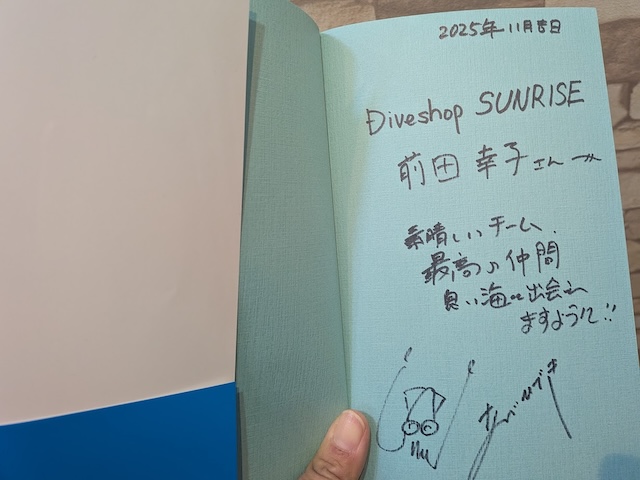 2025年11月吉日
Diveshop SUNRISE
前田 幸子さんへ
素晴しいチーム、
最高の仲間
良い海に出会え
ますように!!